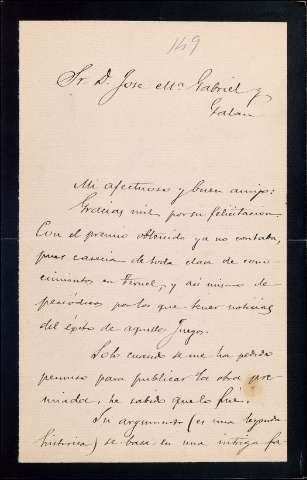 149
Sr. D. Jose Mª Gabriel y
Galan
Mi afectuoso y buen amigo:
Gracias mil por su felicitacion.
Con el premio obtenido ya no contaba,
pues carecia de toda clase de cono-
cimientos en Teruel, y asi mismo de
periodicos por los que tener noticias
del éxito de aquellos Juegos.
Solo cuando se me ha pedido
permiso para publicar la obra pre-
miada, he sabido que lo fué.
Su argumento (es una leyenda
historica) se basa en una intriga fa